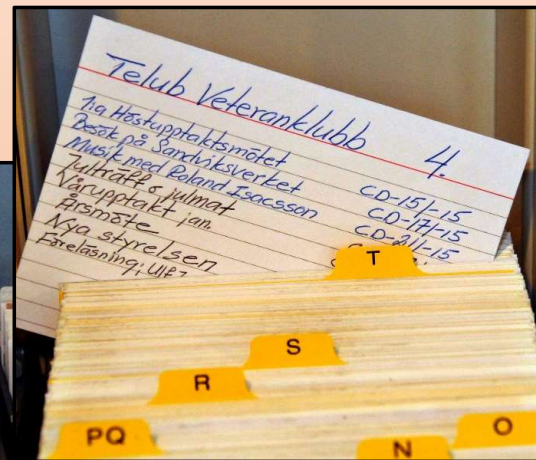 Telub Veteranklubb 4.
1:a Höstupptaktsmötet CD-15/-15
Besök på Sandviksverket CD-17/-15
Musik med Roland Isacsson CD-21/-15
Julträff & julmat
Vårupptakt jan.
Årsmöte
Nya styrelsen
Föreläsning; Ulf
T
S
R
PQ
O
N